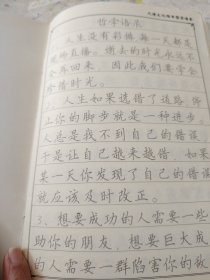 哲学语录
人生没有彩排，每一天都是
现场直播。逝去的时光永远不
会再回来，因此我们要学会
珍惜时光。
2、人生如果选错了道路，停
止你的脚步就是一种进步。
人总是找不到自己的错误，
于是让自己越来越错误，如果
某一天你发现了自己的错误
就应该及时改正。
3、想要成功的人需要一些
助你的朋友，想要巨大成
的人需要一群陷害你的敌